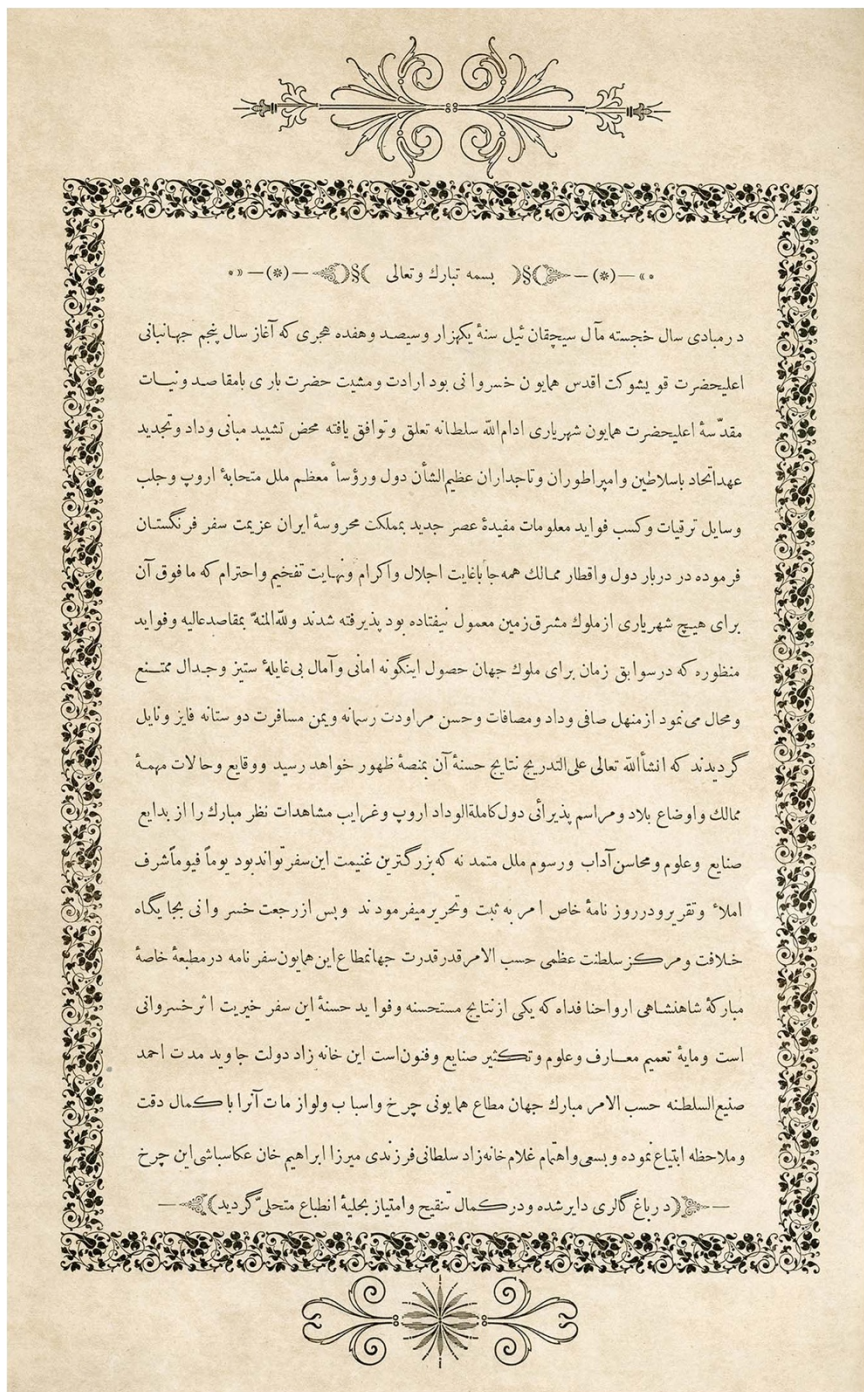 بسمه تبارك وتعالى
در مبادی سال خجسته مآل سیچقان ئیل سنهٔ یکهزار وسیصد وهفده هجری که آغاز سال پنجم جهانبانی
اعلیحضرت قویشوکت اقدس همایون خسروانی بود ارادت ومشیت حضرت باری بامقاصد ونیات
مقدّسهٔ اعلیحضرت همایون شهریاری ادام‌الله سلطانه تعلق وتوافق یافته محض تشیید مبانی وداد وتجدید
عهداتحاد باسلاطین وامپراطوران وتاجداران عظیم‌الشأن دول ورؤسأ معظم ملل متحابهٔ اروپ وجلب
وسایل ترقیات وکسب فواید معلومات مفیدهٔ عصر جدید بمملکت محروسهٔ ایران عزیمت سفر فرنگستان
فرموده در دربار دول واقطار ممالك همه جا باغایت اجلال واکرام ونهایت تفخیم واحترام که مافوق آن
برای هیچ شهریاری ازملوك مشرق‌زمین معمول نیفتاده بود پذیرفته شدند ولله‌المنه بمقاصدعالیه وفواید
منظوره که درسوابق زمان برای ملوك جهان حصول اینگونه امانی وآمال بی‌غایلهٔ ستیز وجدال ممتنع
ومحال می‌نمود ازمنهل صافی وداد ومصافات وحسن مراودت رسمانه ویمن مسافرت دوستانه فایز ونایل
گردیدند که انشأالله تعالی علی‌التدریج نتایج حسنهٔ آن بمنصهٔ ظهور خواهد رسید ووقایع وحالات مهمهٔ
ممالك واوضاع بلاد ومراسم پذیرائی دول‌کاملةالوداد اروپ وغرایب مشاهدات نظر مبارك را از بدایع
صنایع وعلوم ومحاسن‌آداب ورسوم ملل متمدنه که بزرگترین غنیمت این‌سفر تواندبود یوماً فیوماً شرف
املاء وتقریرودرروز نامهٔ خاص امر به ثبت وتحریرمیفرمودند وبس ازرجعت خسروانی بجایگاه
خلافت ومرکز سلطنت عظمی حسب الامرقدرقدرت جهانمطاع این همایون سفرنامه درمطبعهٔ خاصهٔ
مبارکهٔ شاهنشاهی ارواحنا فداه که یکی ازنتایج مستحسنه وفواید حسنهٔ این سفر خیریت اثرخسروانی
است ومایهٔ تعمیم معارف وعلوم وتکثیر صنایع وفنون‌است این خانه زاد دولت جاوید مدت احمد
صنیع‌السلطنه حسب الامر مبارك جهان مطاع همایونی چرخ واسباب ولوازمات آنرا باکمال دقت
وملاحظه ابتیاع نموده وبسعی واهتمام غلام خانه‌زاد سلطانی فرزندی میرزا ابراهیم خان عکاسباشی این چرخ
درباغ گالری دایر شده ودرکمال تنقیح وامتیاز بحلیهٔ انطباع متحلّی گردید